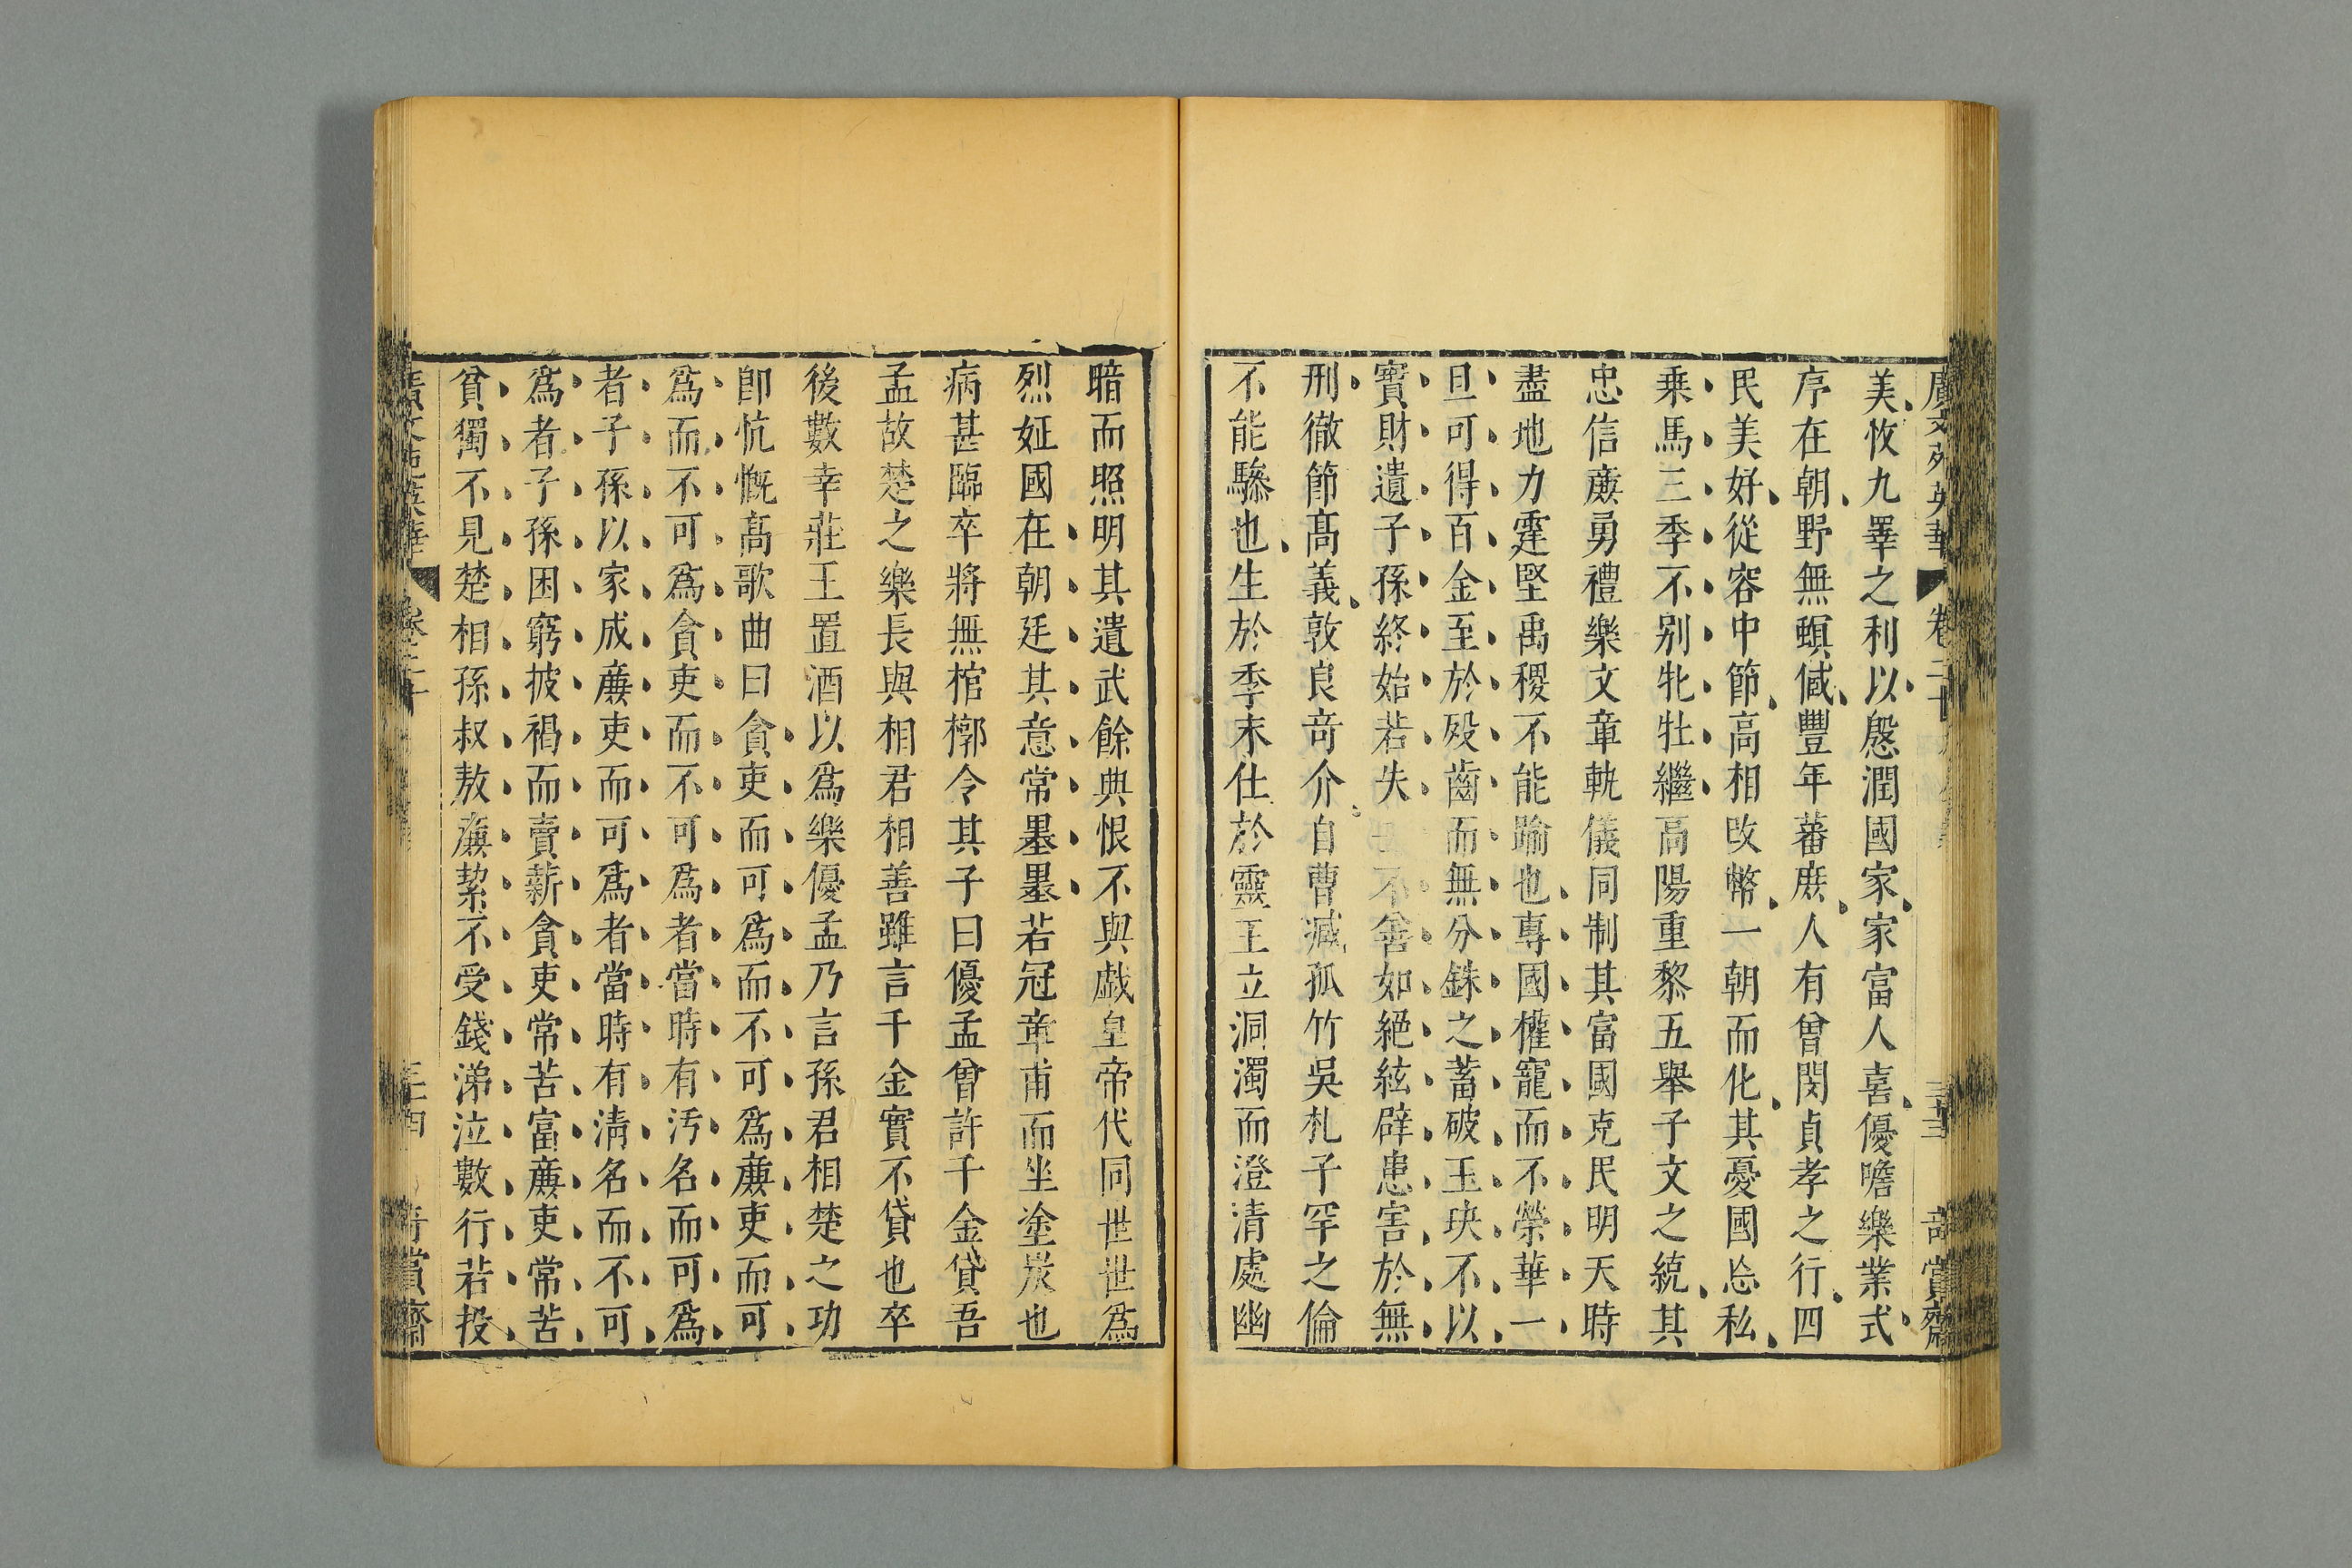 廣文苑英華 卷二十 賞齋
美攸九睪之利以慇潤國家家富人喜優贍樂業式
序在朝野無螟㦑豐年蕃庶人有曾閔貞孝之行四
民美好從容中節高相改幣一朝而化其憂國忘私
乗馬三季不别牝牡繼高陽重黎五舉子文之統其
忠信亷勇禮樂文章軌儀同制其富國克民明天時
盡地力霆堅禹稷不能踰也專國權寵而不榮華一
旦可得百金至於歿齒而無分銖之蓄破玉玦不以
寶財遺子孫終始若失不善如絕絃辟患害於無
刑徹節髙義敦良竒介自曹臧孤竹吳札子罕之倫
不能驂也生於季末仕於靈王立洞濁而澄清處幽
暗而照明其遺武餘典恨不與戯皇帝代同世世爲
烈姃國在朝廷其意常墨墨若冠章甫而坐塗炭也
病甚臨卒將無棺槨令其子曰優孟曾許千金貸吾
孟故楚之樂長與相君相善雖言千金實不貸也卒
後數年莊王置酒以爲樂優孟乃言孫君相楚之功
卽忼慨髙歌曲曰貪吏而可爲而不可爲亷吏而可
爲而不可爲貪吏而不可爲者當時有汚名而可爲
者子孫以家成亷吏而可爲者當時有清名而不可
爲者子孫困窮披褐而賣薪貪吏常苦富亷吏常苦
貧獨不見楚相孫叔敖亷絜不受錢涕泣數行若投
廣文苑英華 卷二十 賞齋